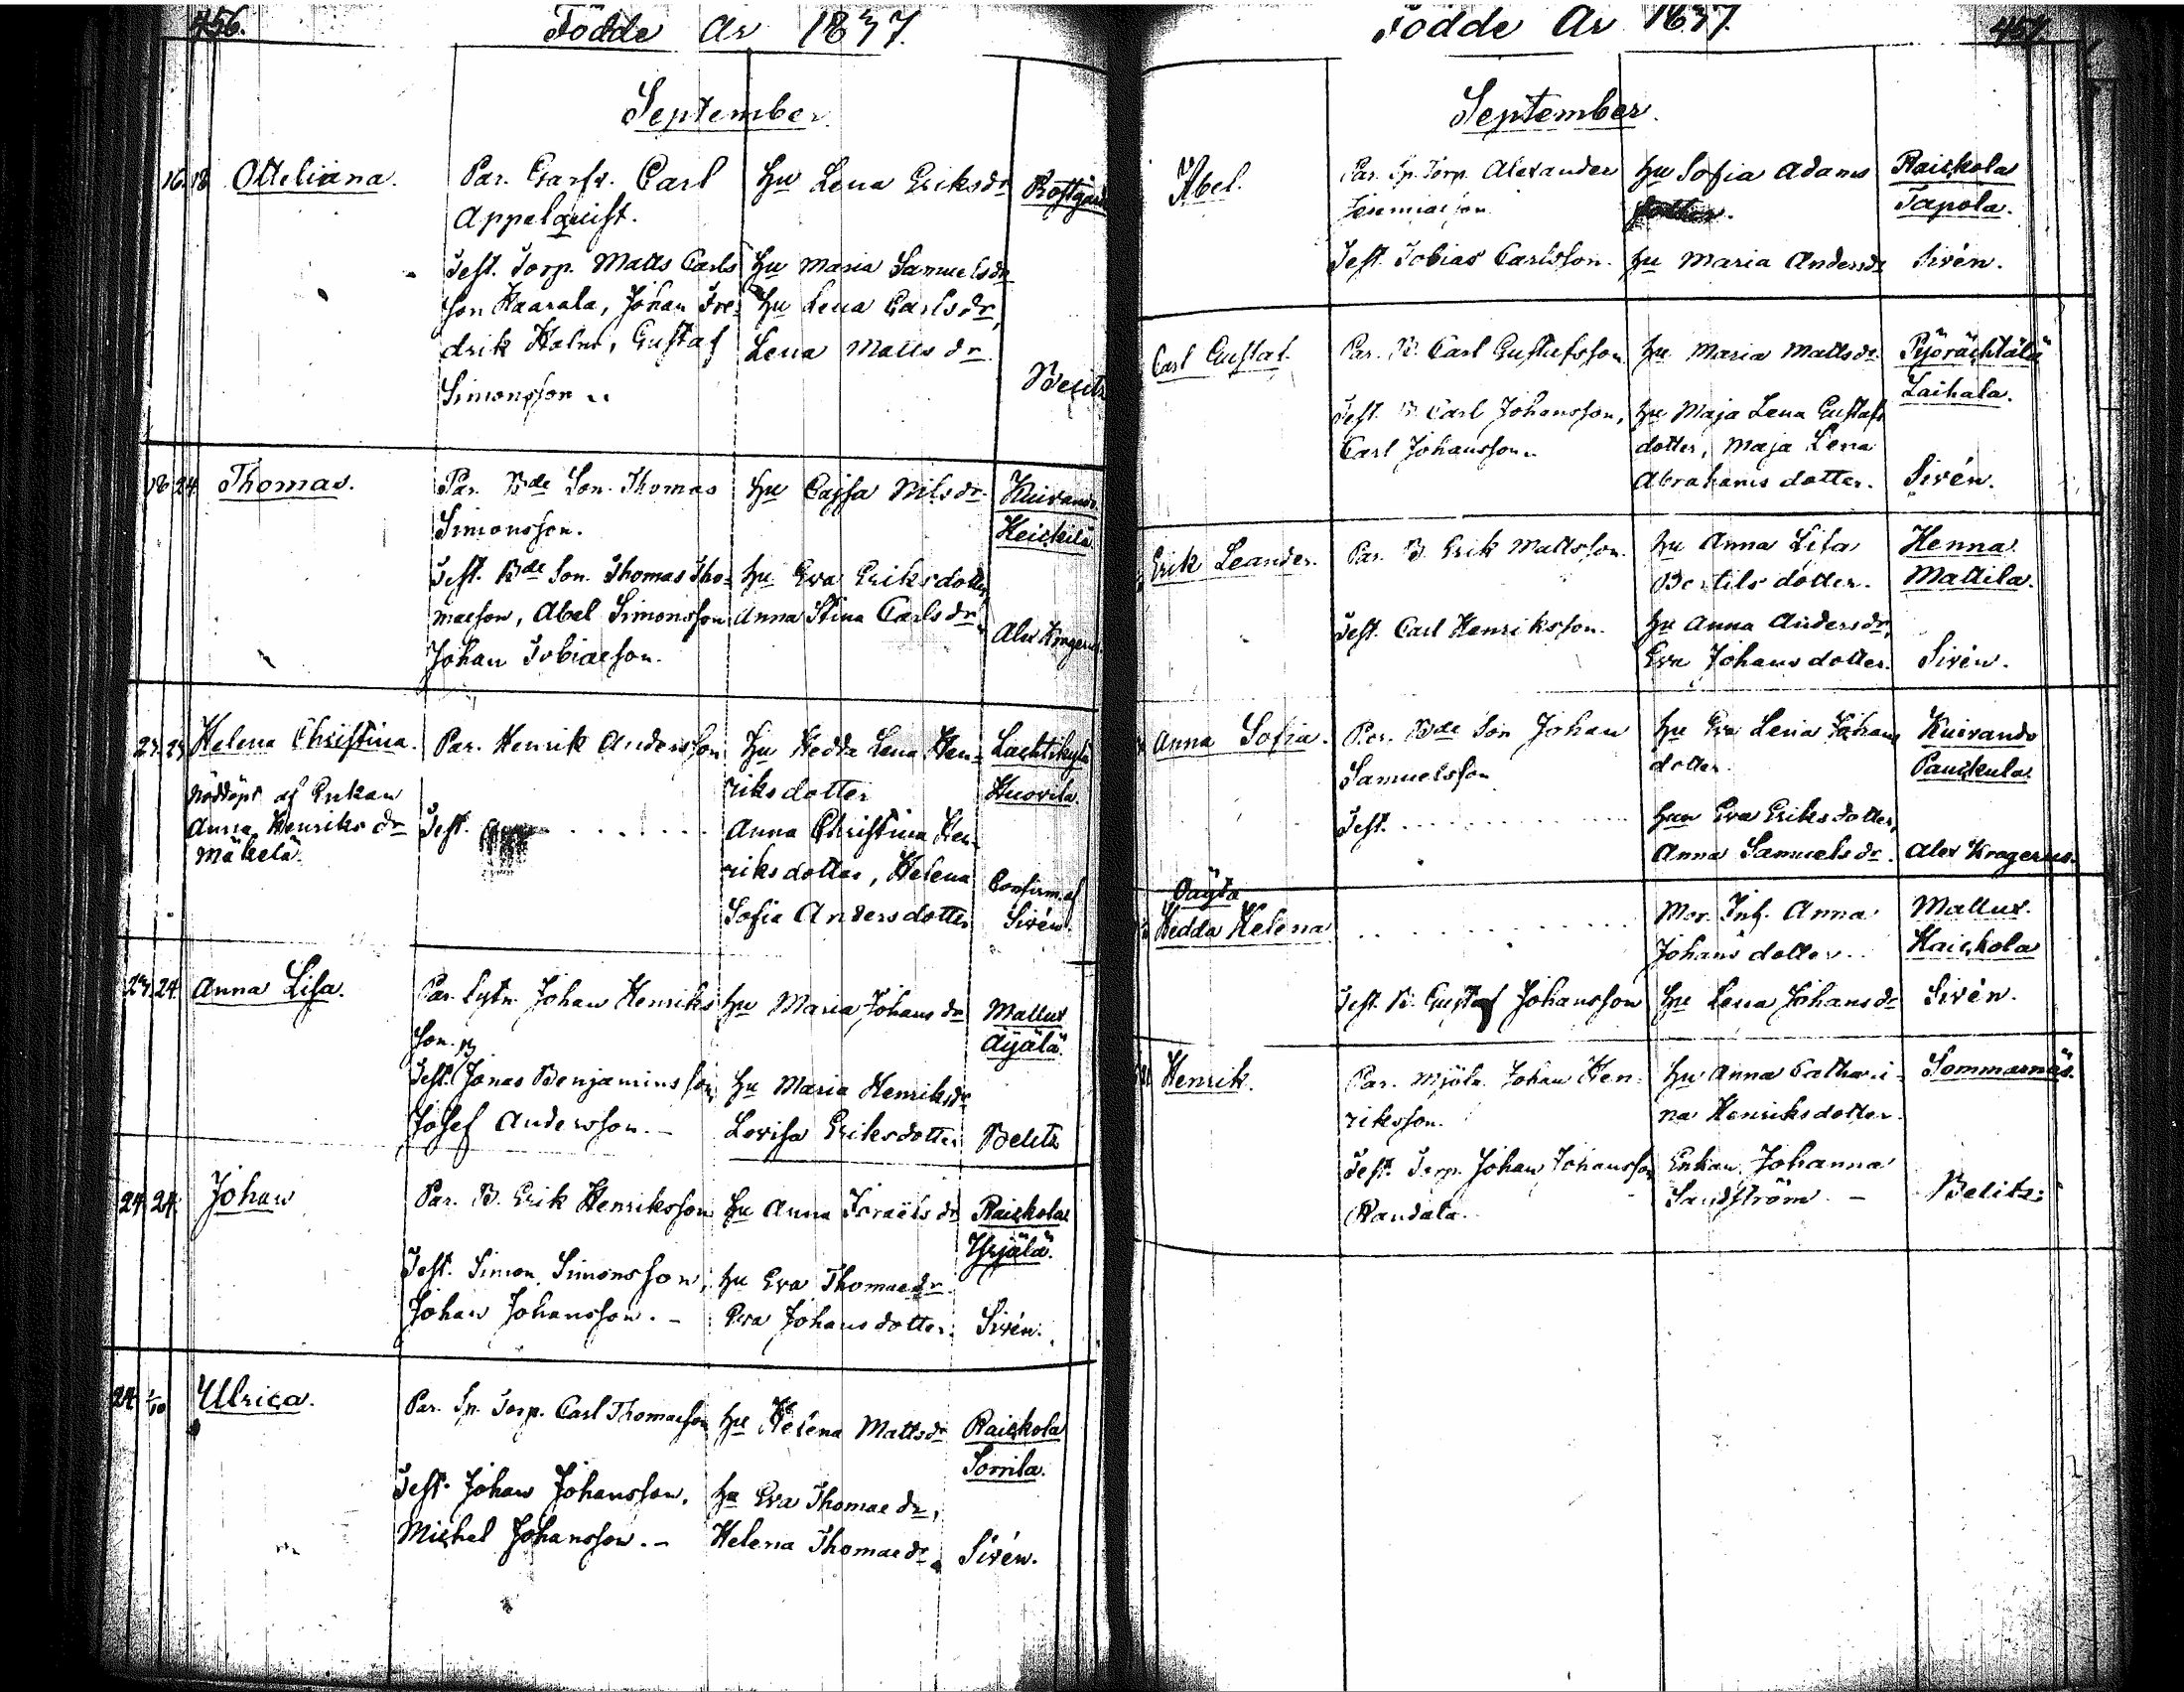 456.
Födde År 1837.
September.
16. 18. Otteliana.
Par. Garfv. Carl
Appelquist.
Hu Lena Eriksdr
Test. Torp. Matts Carls
son Kaarala, Johan Fre-
drik Holm, Gustaf
Simonsson
Hu Maria Samuelsdr
Hu Lena Carlsdr,
Lena Mattsdr
Belitz
24. Thomas.
Par. Bde Son. Thomas
Simonsson.
Hu Cajsa Nilsdr.
Kuivando
Heickilä
Test. Bde Son. Thomas Tho-
maeson, Abel Simonsson
Johan Tobiaeson.
Hu Eva Eriksdotter,
Anna Stina Carlsdr
Alex Krogerus.
Helena Christina.
Nöddöpt af Enkan
Anna Henriksdr
Mäkelä.
Par. Henrik Andersson
Hu Hedda Lena Hen-
riksdotter
Lachtikylä
Huovila.
Test.
Anna Christina Hen-
riksdotter, Helena
Sofia Andersdotter
Confirm. af
Sirén.
24. Anna Lisa.
Par. Sytn. Johan Henriks
son.
Hu Maria Johansdr
Mallus
Äyälä.
Test. B Jonas Benjaminsson,
Josef Andersson. -
Hu Maria Henriksdr
Lovisa Eriksdotter
Belitz
24. 24. Johan
Par. B. Erik Henriksson
Hu Anna Israëlsdr
Raickola
Yrjälä.
Test. Simon Simonsson,
Johan Johansson. -
Hu Eva Thomaedr
Eva Johansdotter.
Sirén.
24. 1/10 Ulrica.
Par. Sp. Torp. Carl Thomaeson
Hu Helena Mattsdr
Raickola
Sorrila.
Test. Johan Johansson,
Michel Johansson. -
Hu Eva Thomaedr,
Helena Thomaedr
Sirén.
457.
Födde År 1837.
September.
Abel.
Par. Sp. Torp. Alexander
Jeremiaeson
Hu Sofia Adams
dotter.
Raickola
Tapola.
Test. Tobias Carlsson.
Hu Maria Andersdr
Sirén.
Carl Gustaf.
Par. B. Carl Gustafsson
Hu Maria Mattsdr.
Pyörächtälä
Laihala.
Test. B. Carl Johansson,
Carl Johansson.
Hu Maja Lena Gustafs
dotter, Maja Lena
Abrahamsdotter.
Sirén.
Erik Leander.
Par. B. Erik Mattsson.
Hu Anna Lisa
Bertilsdotter.
Henna
Mattila.
Test. Carl Henriksson.
Hu Anna Andersdr,
Eva Johansdotter.
Sirén.
Anna Sofia.
Par. Bde Son Johan
Samuelsson
Hu Eva Lena Johans
dotter.
Kuivando
Pauckula.
Test.
Hun Eva Eriksdotter,
Anna Samuelsdr.
Alex Krogerus.
Oäyta
Hedda Helena
Mor. Inh. Anna
Johansdotter.
Mallus.
Haickola
Test. B. Gustaf Johansson
Hu Lena Johansdr
Sirén.
Henrik.
Par. Mjöln. Johan Hen-
riksson.
Hu Anna Cathari-
na Henriksdotter.
Sommarnäs.
Test. Torp. Johan Johansson
Randala.
Enkan Johanna
Sandström. -
Belitz.